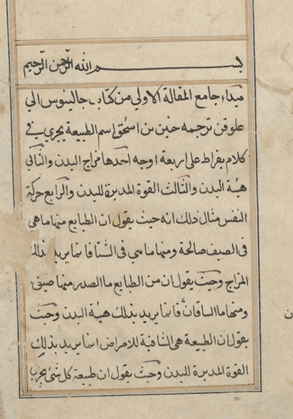 بسم الله الرحمن الرحيم
مبداء جامع المقالة الاولي من كتاب جالينوس الي
علوقن ترجمه حنين بن اسحق اسم الطبيعة يجري في
كلام بقراط علي اربعة اوجه احدها مزاج البدن والثاني
هيئة البدن والثالث القوة المدبرة للبدن والرابع حركة
النفس مثال ذلك انه حيث يقول ان الطبايع منها ما هي
في الصيف صالحة ومنها ما هي في الشتا فانما يريد بذلك
المزاج وحيث يقول ان من الطبايع ما الصدر منها ضيق
ومنها ما الساقان فانما يريد بذلك هيئة البدن وحيث
يقول ان الطبيعة هي الشافية للامراض انما يريد بذلك
القوة المدبرة للبدن وحيث يقول ان طبيعة كل شي